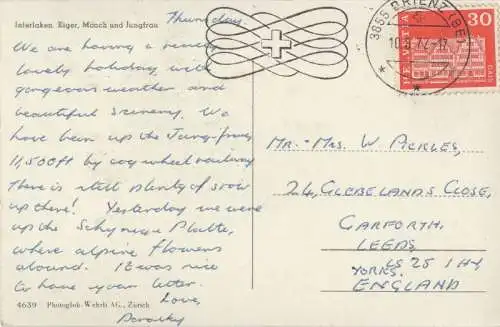 Interlaken. Eiger, Mönch und Jungfrau
Thursday.
We are having a really
lovely holiday with
gorgeous weather and
beautiful scenery. We
have been up the Jungfrau
11,500ft by cog wheel railway
There is still plenty of snow
up there! Yesterday we were
up the Schynige Platte,
where alpine flowers
abound. It was nice
to have your letter.
Love,
Dorothy
4639 Photoglob-Wehrli AG., Zürich
3855 BRIENZ (BE)
HELVETIA
30
Mr. & Mrs. W Pickles,
24, Glebelands Close,
Garforth,
Leeds
LS25 1HY
Yorks.
England